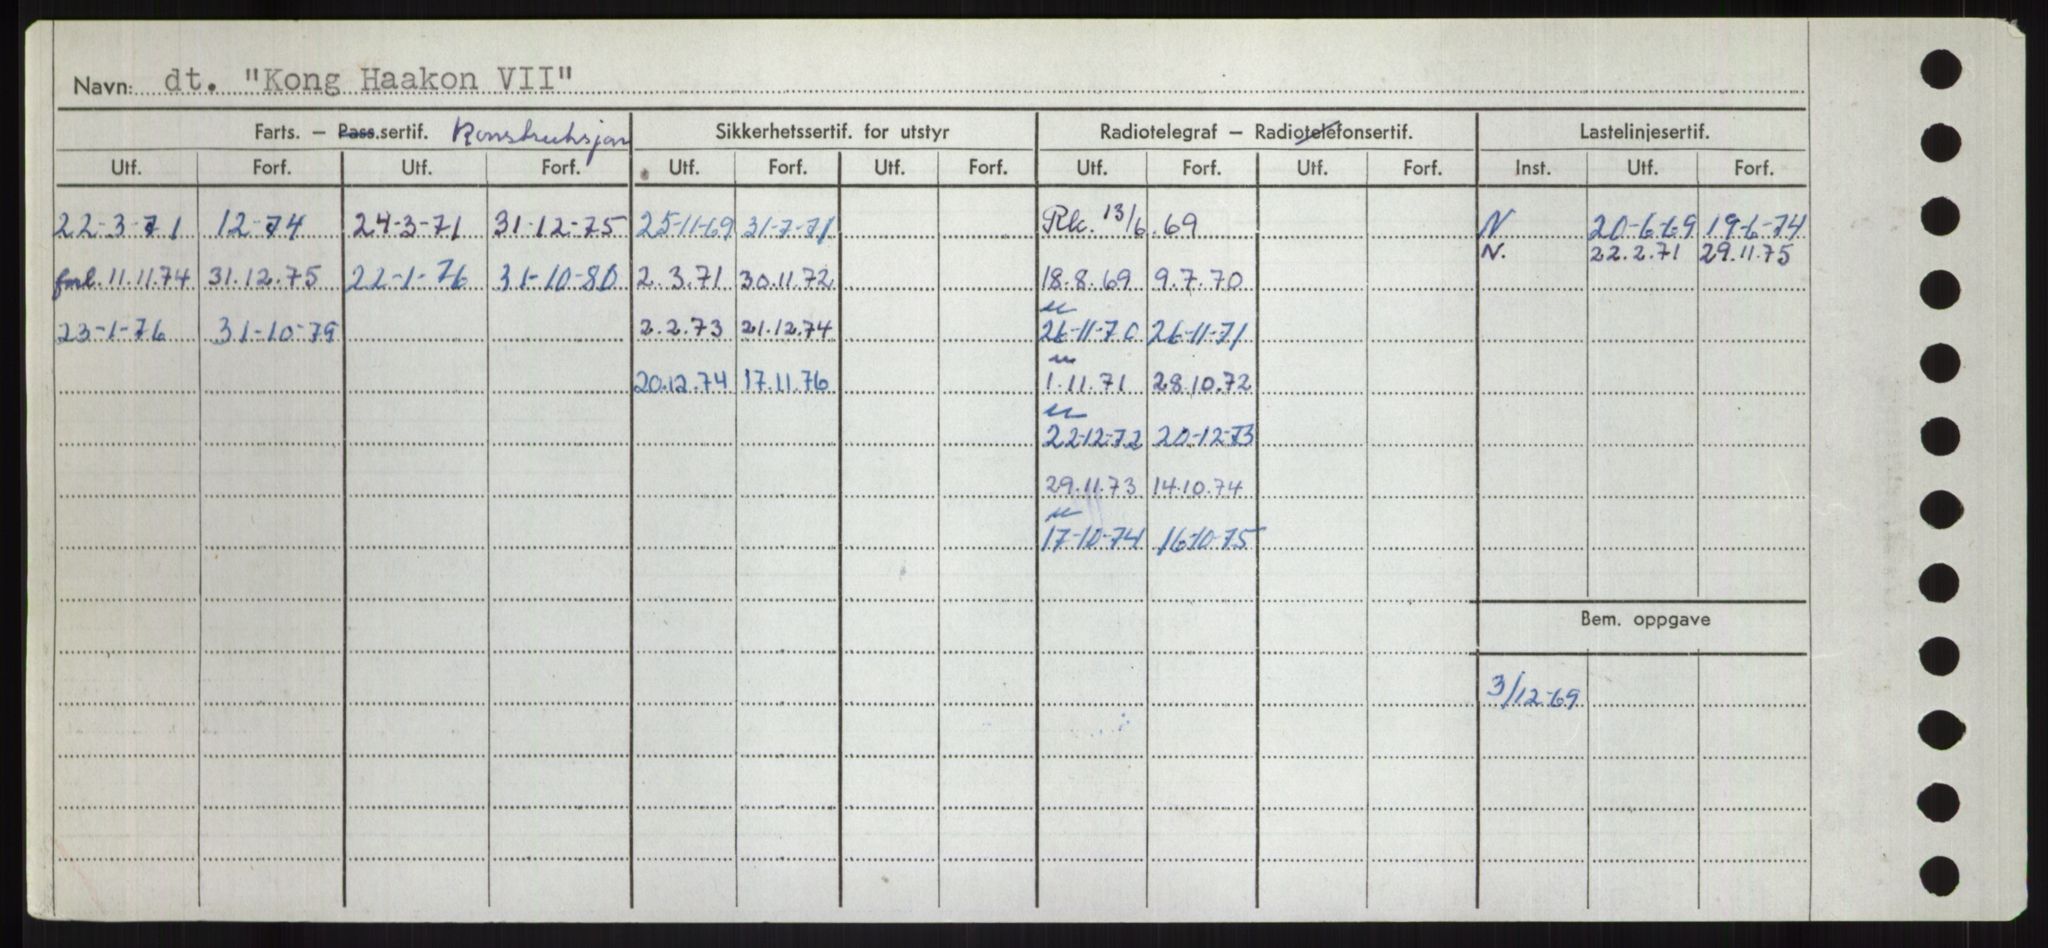 Navn: dt. "Kong Haakon VII"
Farts. – Pass.sertif. Konstruksjon Sikkerhetssertif. for utstyr Radiotelegraf – Radiotelefonsertif. Lastelinjesertif.
Utf. Forf. Utf. Forf. Utf. Forf. Utf. Forf. Utf. Forf. Utf. Forf. Inst. Utf. Forf.
22-3-71 12-74 24-3-71 31-12-75 25-11-69 31-7-71 Rk. 13/6.69 N 20-6-69 19-6-74
N. 22.2.71 29.11.75
forl. 11.11.74 31.12.75 22-1-76 31-10-80 2.3.71 30.11.72 18.8.69 9.7.70
23-1-76 31-10-79 2.2.73 21.12.74 26-11-70 26-11-71
20.12.74 17.11.76 1.11.71 28.10.72
22-12-72 20-12-73
29.11.73 14.10.74
17-10-74 16-10-75
Bem. oppgave
3/12-69